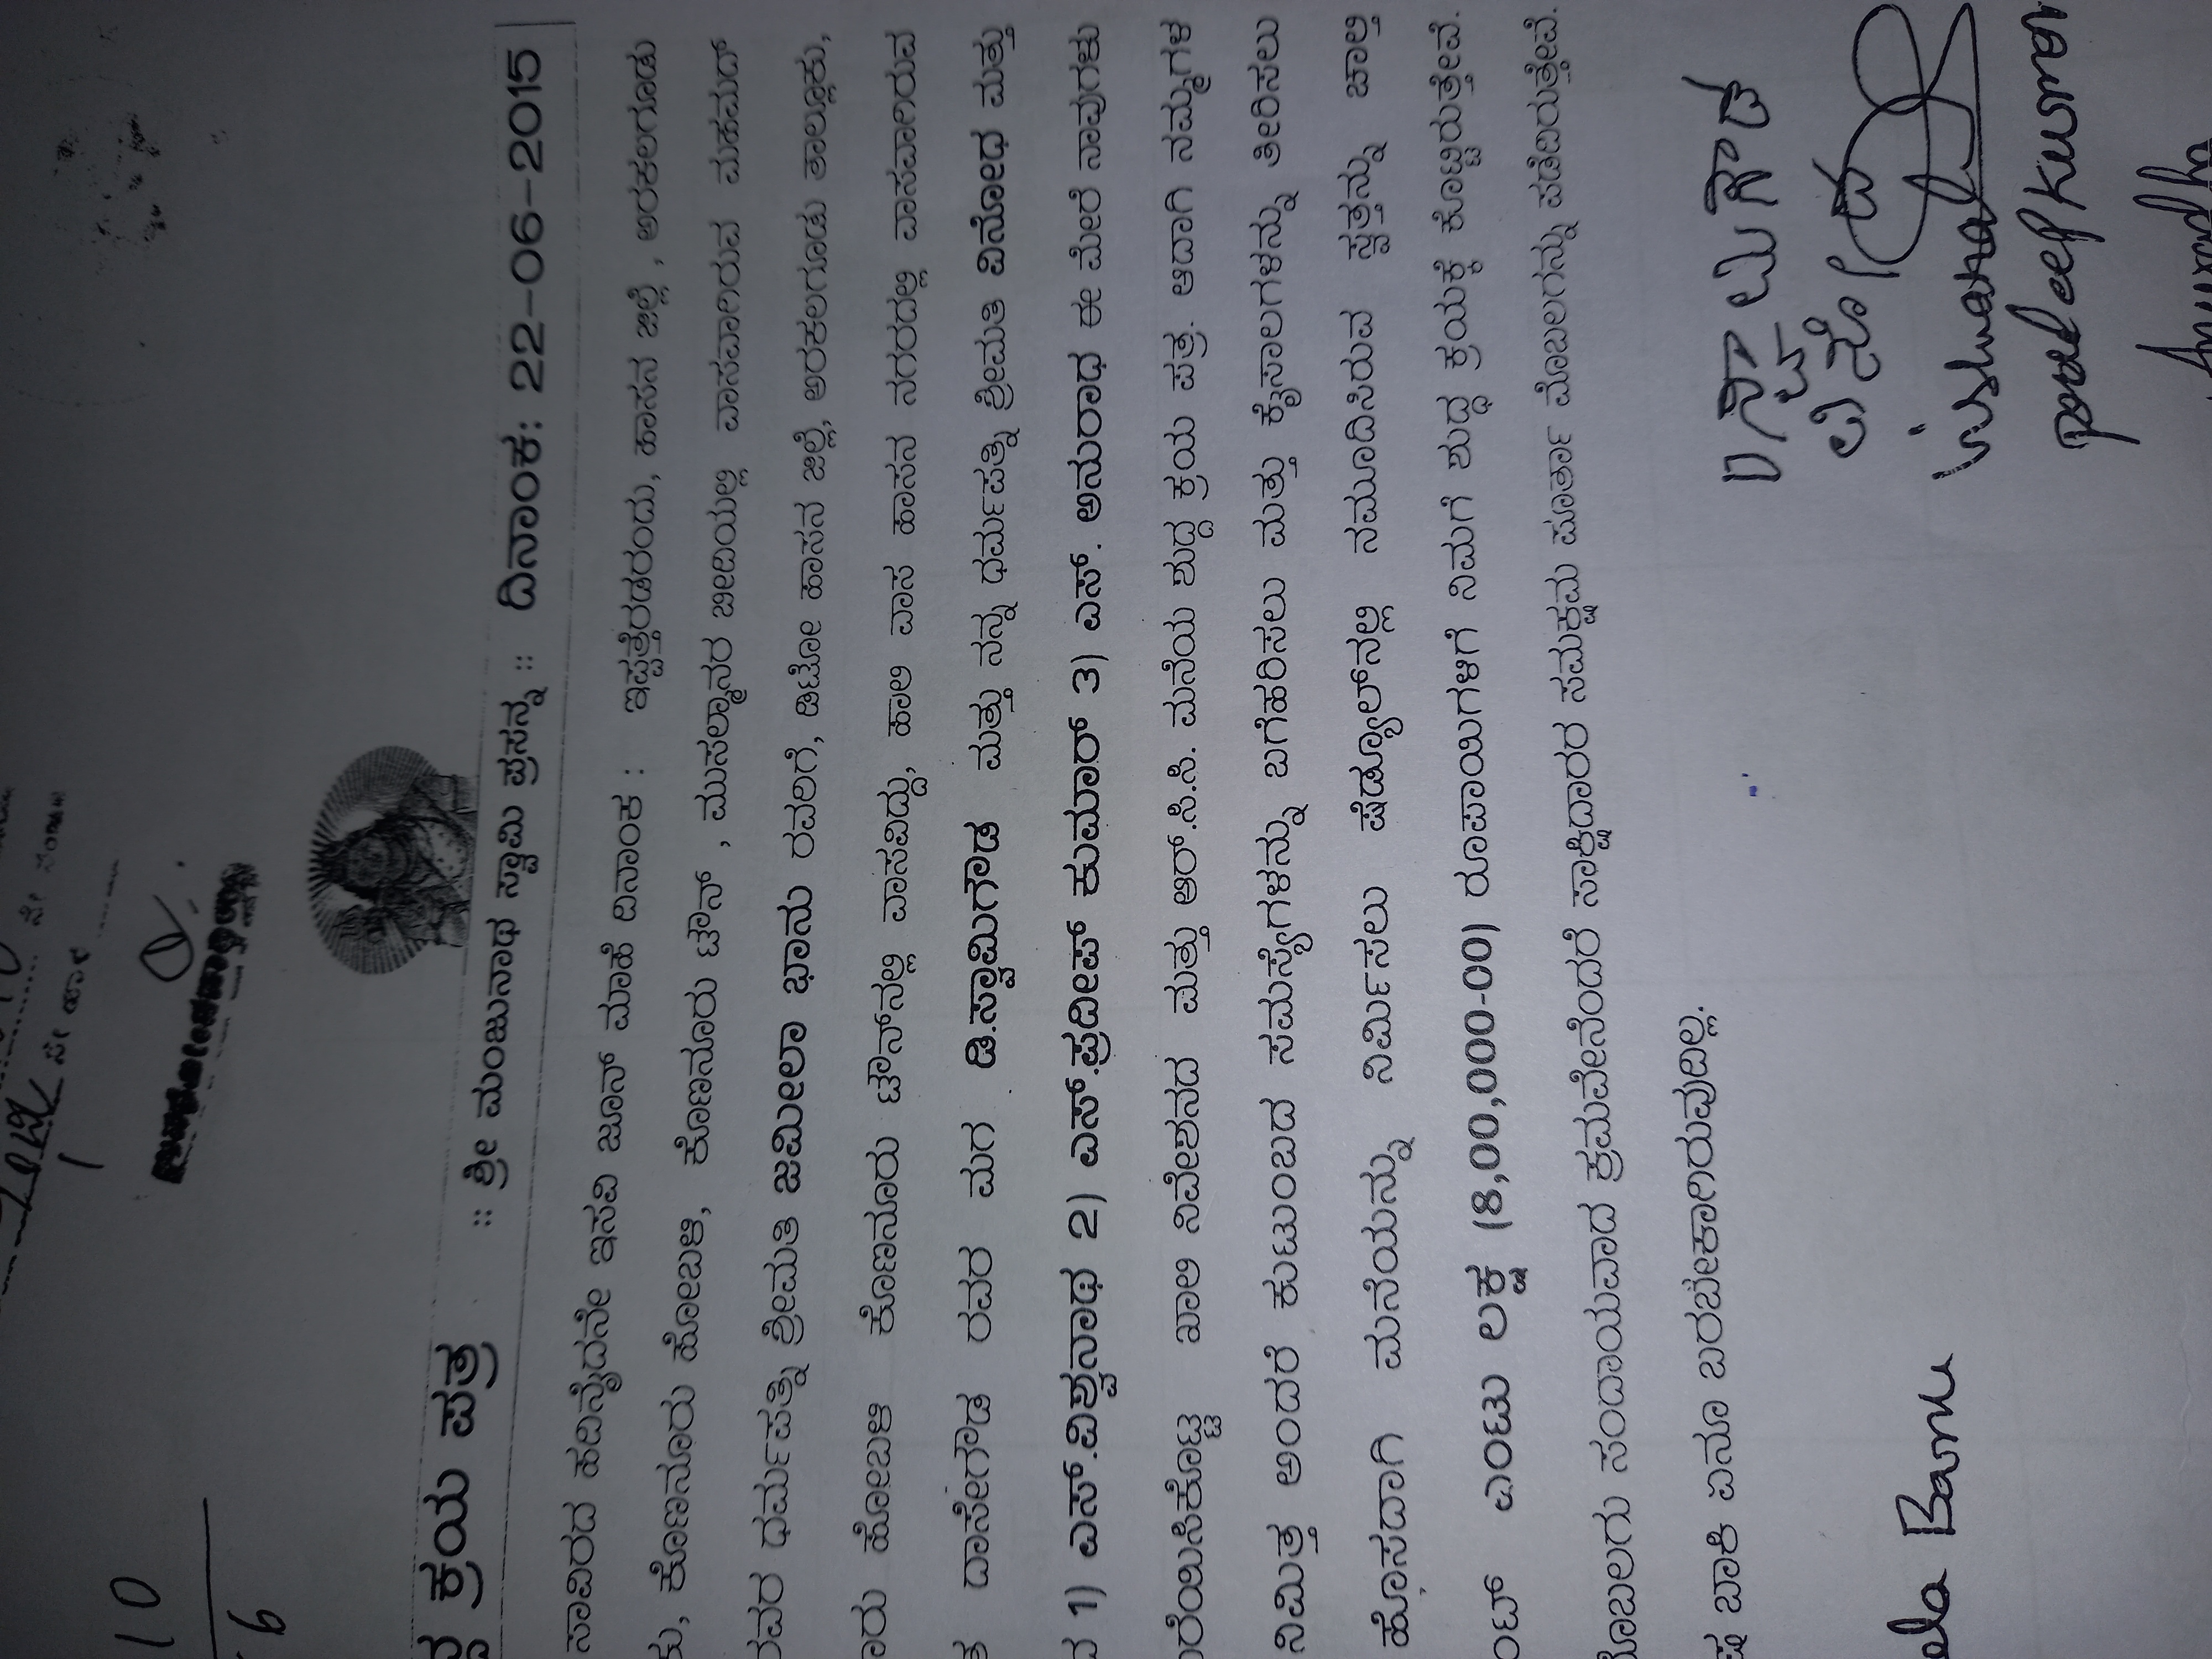 10
6
ಕ್ರಯ ಪತ್ರ :: ಶ್ರೀ ಮಂಜುನಾಥ ಸ್ವಾಮಿ ಪ್ರಸನ್ನ :: ದಿನಾಂಕ: 22-06-2015
ಸಾವಿರದ ಹದಿನೈದನೇ ಇಸವಿ ಜೂನ್ ಮಾಹೆ ದಿನಾಂಕ : ಇಪ್ಪತ್ತೆರಡರಂದು, ಹಾಸನ ಜಿಲ್ಲೆ, ಅರಕಲಗೂಡು
ಕೊಣನೂರು ಹೋಬಳಿ, ಕೊಣನೂರು ಟೌನ್, ಮುಸಲ್ಮಾನರ ಬೀದಿಯಲ್ಲಿ ವಾಸವಾಗಿರುವ ಮಹಮದ್
ಧರ್ಮಪತ್ನಿ ಶ್ರೀಮತಿ ಜಮೀಲಾ ಭಾನು ರವರಿಗೆ, ಡಿಟೋ ಹಾಸನ ಜಿಲ್ಲೆ, ಅರಕಲಗೂಡು ತಾಲ್ಲೂಕು,
ಹೋಬಳಿ ಕೊಣನೂರು ಟೌನ್‌ನಲ್ಲಿ ವಾಸವಿದ್ದು, ಹಾಲಿ ವಾಸ ಹಾಸನ ನಗರದಲ್ಲಿ ವಾಸವಾಗಿರುವ
ದಾಸೇಗೌಡ ರವರ ಮಗ ಡಿ.ಸ್ವಾಮಿಗೌಡ ಮತ್ತು ನನ್ನ ಧರ್ಮಪತ್ನಿ ಶ್ರೀಮತಿ ವಿನೋಧ ಮತ್ತು
1) ಎಸ್.ವಿಶ್ವನಾಥ 2) ಎಸ್.ಪ್ರದೀಪ್ ಕುಮಾರ್ 3) ಎಸ್. ಅನುರಾಧ ಈ ಮೇರೆ ನಾವುಗಳು
ಖಾಲಿ ನಿವೇಶನದ ಮತ್ತು ಆರ್.ಸಿ.ಸಿ. ಮನೆಯ ಶುದ್ಧ ಕ್ರಯ ಪತ್ರ. ಅದಾಗಿ ನಮ್ಮಗಳ
ನಿಮಿತ್ತ ಅಂದರೆ ಕುಟುಂಬದ ಸಮಸ್ಯೆಗಳನ್ನು ಬಗೆಹರಿಸಲು ಮತ್ತು ಕೈಸಾಲಗಳನ್ನು ತೀರಿಸಲು
ಹೊಸದಾಗಿ ಮನೆಯನ್ನು ನಿರ್ಮಿಸಲು ಷೆಡ್ಯೂಲ್‌ನಲ್ಲಿ ನಮೂದಿಸಿರುವ ಸ್ವತ್ತನ್ನು ಚಾಲ್ತಿ
ಎಂಟು ಲಕ್ಷ (8,00,000-00) ರೂಪಾಯಿಗಳಿಗೆ ನಿಮಗೆ ಶುದ್ಧ ಕ್ರಯಕ್ಕೆ ಕೊಟ್ಟಿರುತ್ತೇವೆ.
ಸಂದಾಯವಾದ ಕ್ರಮವೇನೆಂದರೆ ಸಾಕ್ಷಿದಾರರ ಸಮಕ್ಷಮ ಪೂರ್ತಾ ಮೊಬಲಗನ್ನು ಪಡೆದಿರುತ್ತೇವೆ.
ಬಾಕಿ ಏನೂ ಬರಬೇಕಾಗಿರುವುದಿಲ್ಲ.
D ಸ್ವಾಮಿಗೌಡ
ವಿನೋಧ
Vishwanath
pradeepkumar
Anuradha
Banu